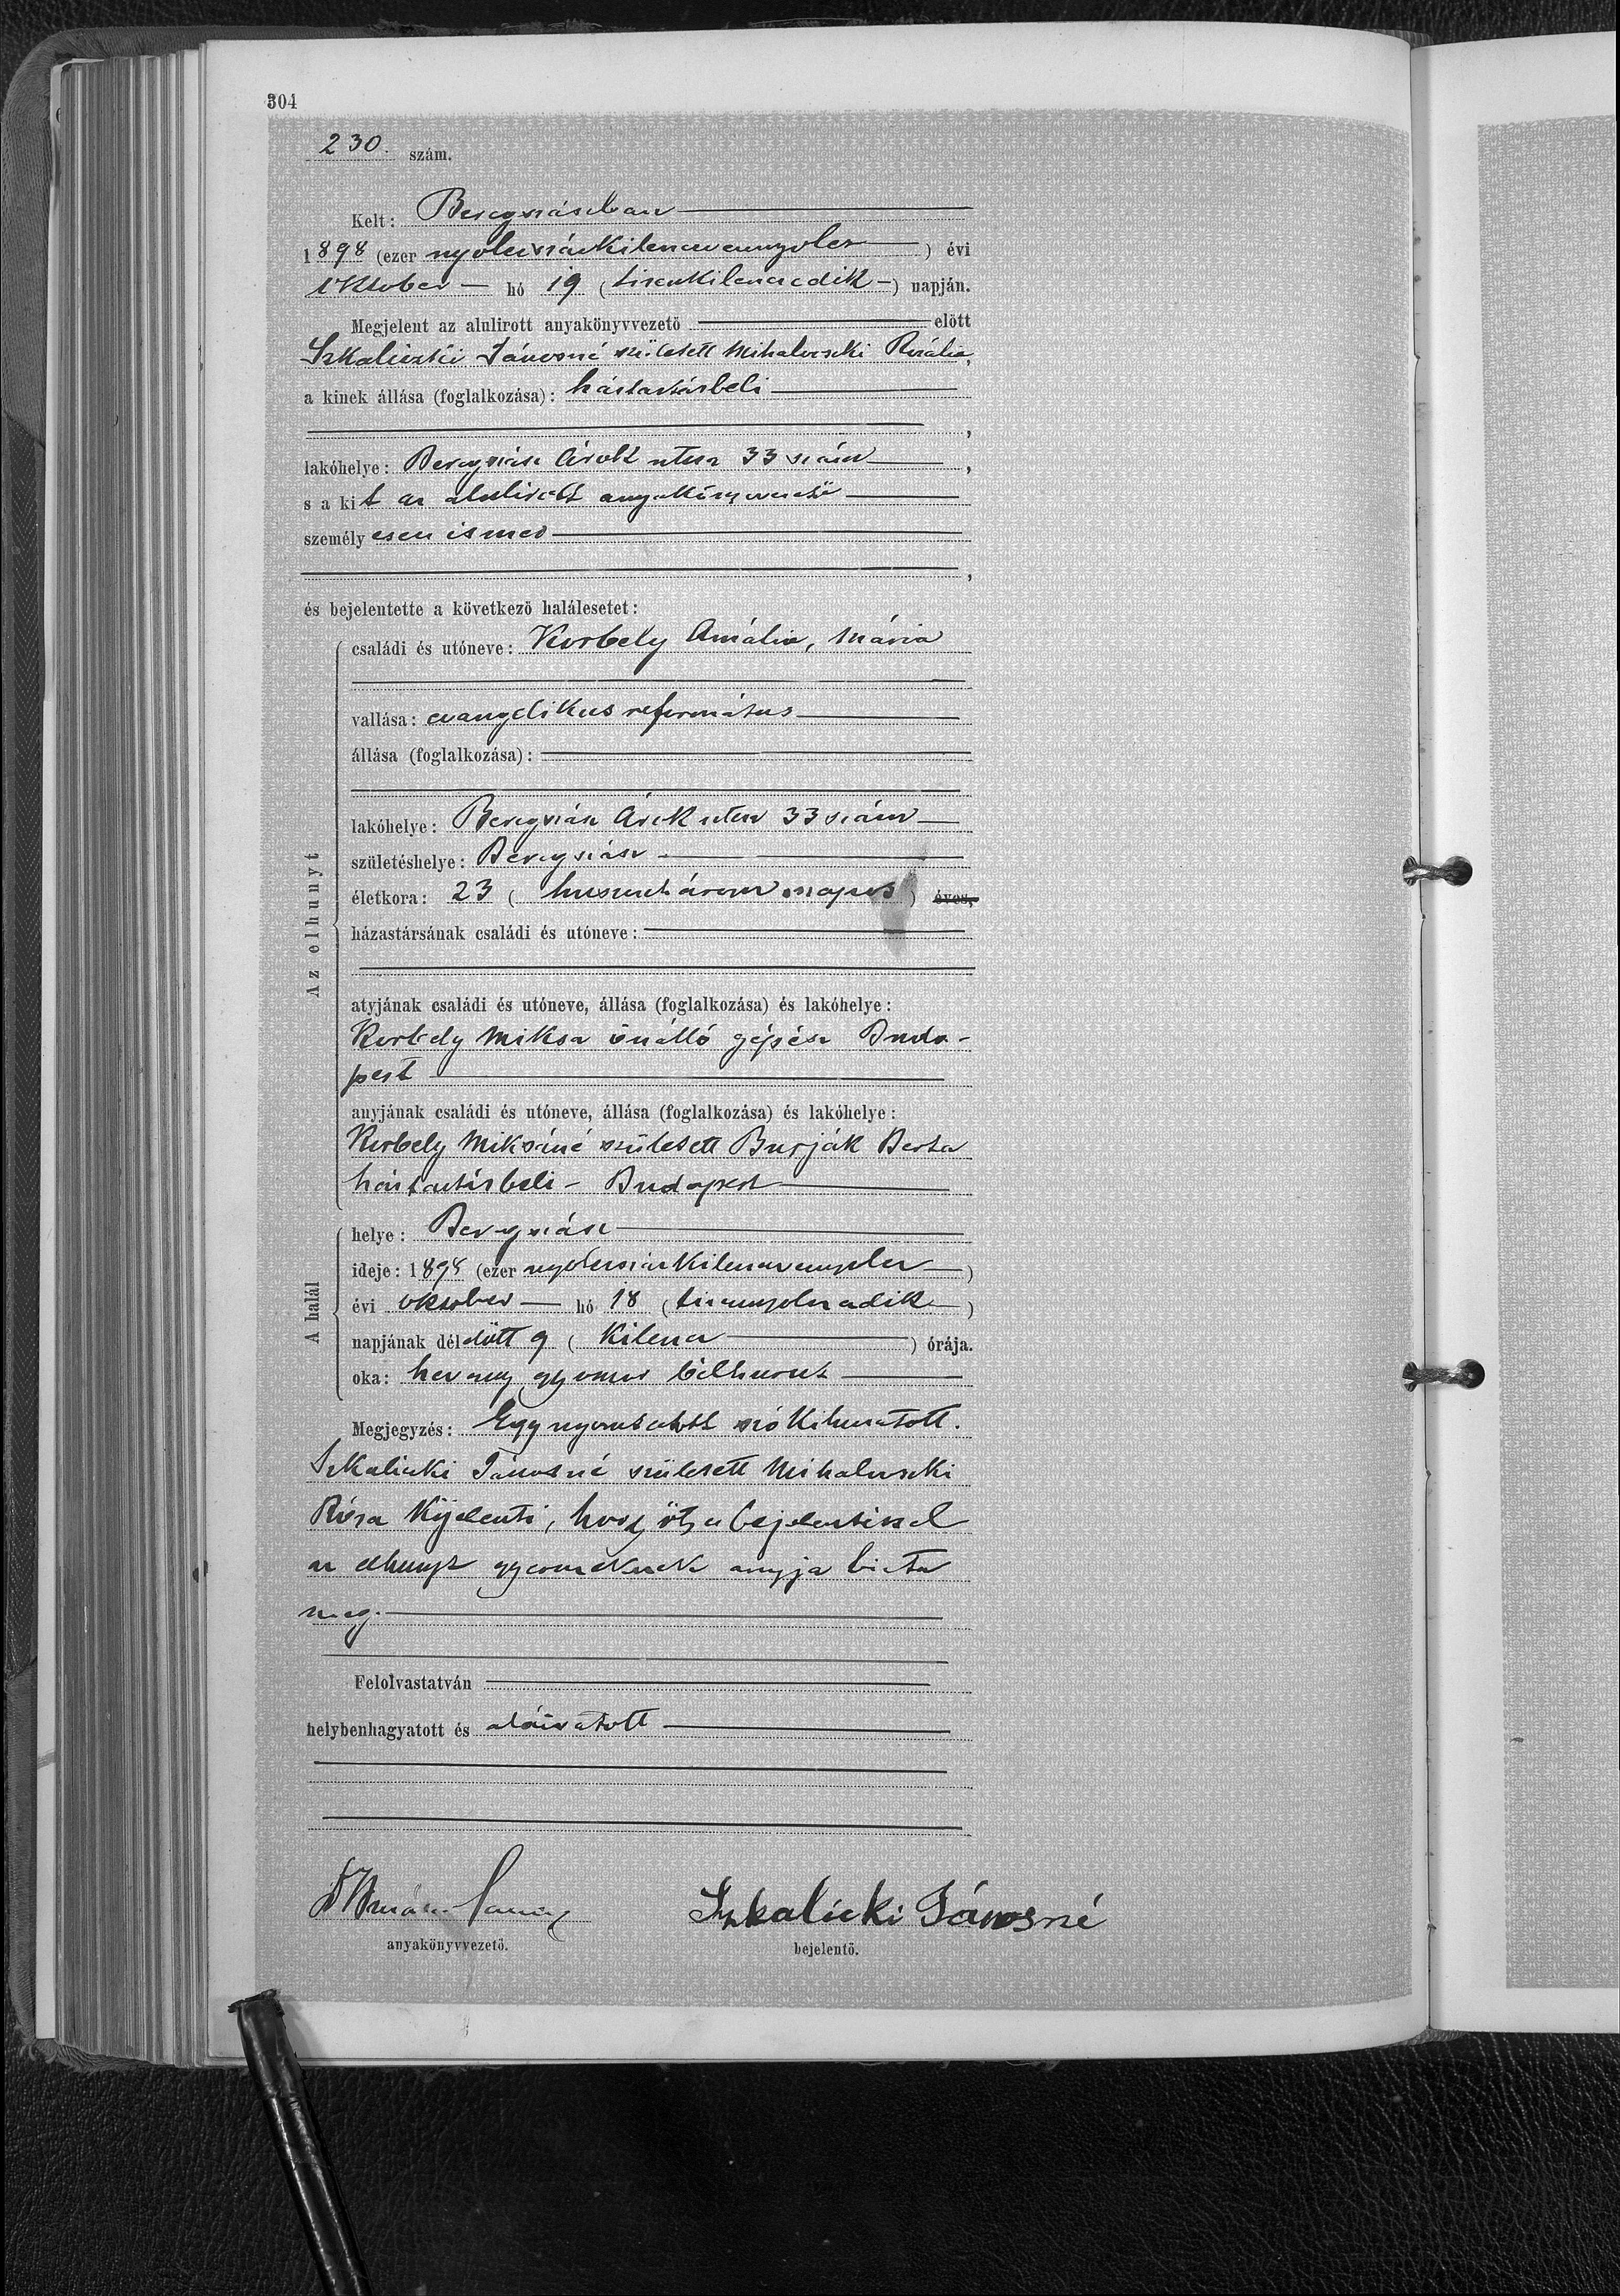 304
230. szám.
Kelt: Beregszászban
1898 (ezer nyolczszázkilenczvennyolcz) évi
október hó 19 (tizenkilenczedik) napján.
Megjelent az alulirott anyakönyvvezető előtt
Szkaliczki Jánosné született Mihalovszki Rozália,
a kinek állása (foglalkozása): háztartásbeli
,
lakóhelye: Beregszász Árok utcza 33 szám,
s a kit az alulirott anyakönyvvezető
személyesen ismer
,
és bejelentette a következő halálesetet:
Az elhunyt
családi és utóneve: Korbely Amália, Mária
vallása: evangelikus református
állása (foglalkozása):
lakóhelye: Beregszász Árok utcza 33 szám
születéshelye: Beregszász
életkora: 23 (huszonhárom napos) éves,
házastársának családi és utóneve:
atyjának családi és utóneve, állása (foglalkozása) és lakóhelye:
Korbely Miksa önálló gépész Buda-
pest
anyjának családi és utóneve, állása (foglalkozása) és lakóhelye:
Korbely Miksáné született Burják Berta
háztartásbeli - Budapest
A halál
helye: Beregszász
ideje: 1898 (ezer nyolczszázkilenczvennyolcz)
évi október hó 18 (tizennyolczadik)
napjának délelőtt 9 (kilencz) órája.
oka: heveny gyomor bélhurut
Megjegyzés: Egy nyomtatott szó kihuzatott.
Szkaliczki Jánosné született Mihalovszki
Róza kijelenti, hogy őt, a bejelentéssel
az elhunyt gyermeknek anyja bizta
meg.
Felolvastatván
helybenhagyatott és aláiratott
anyakönyvvezető.
Szkalicki Jánosné
bejelentő.